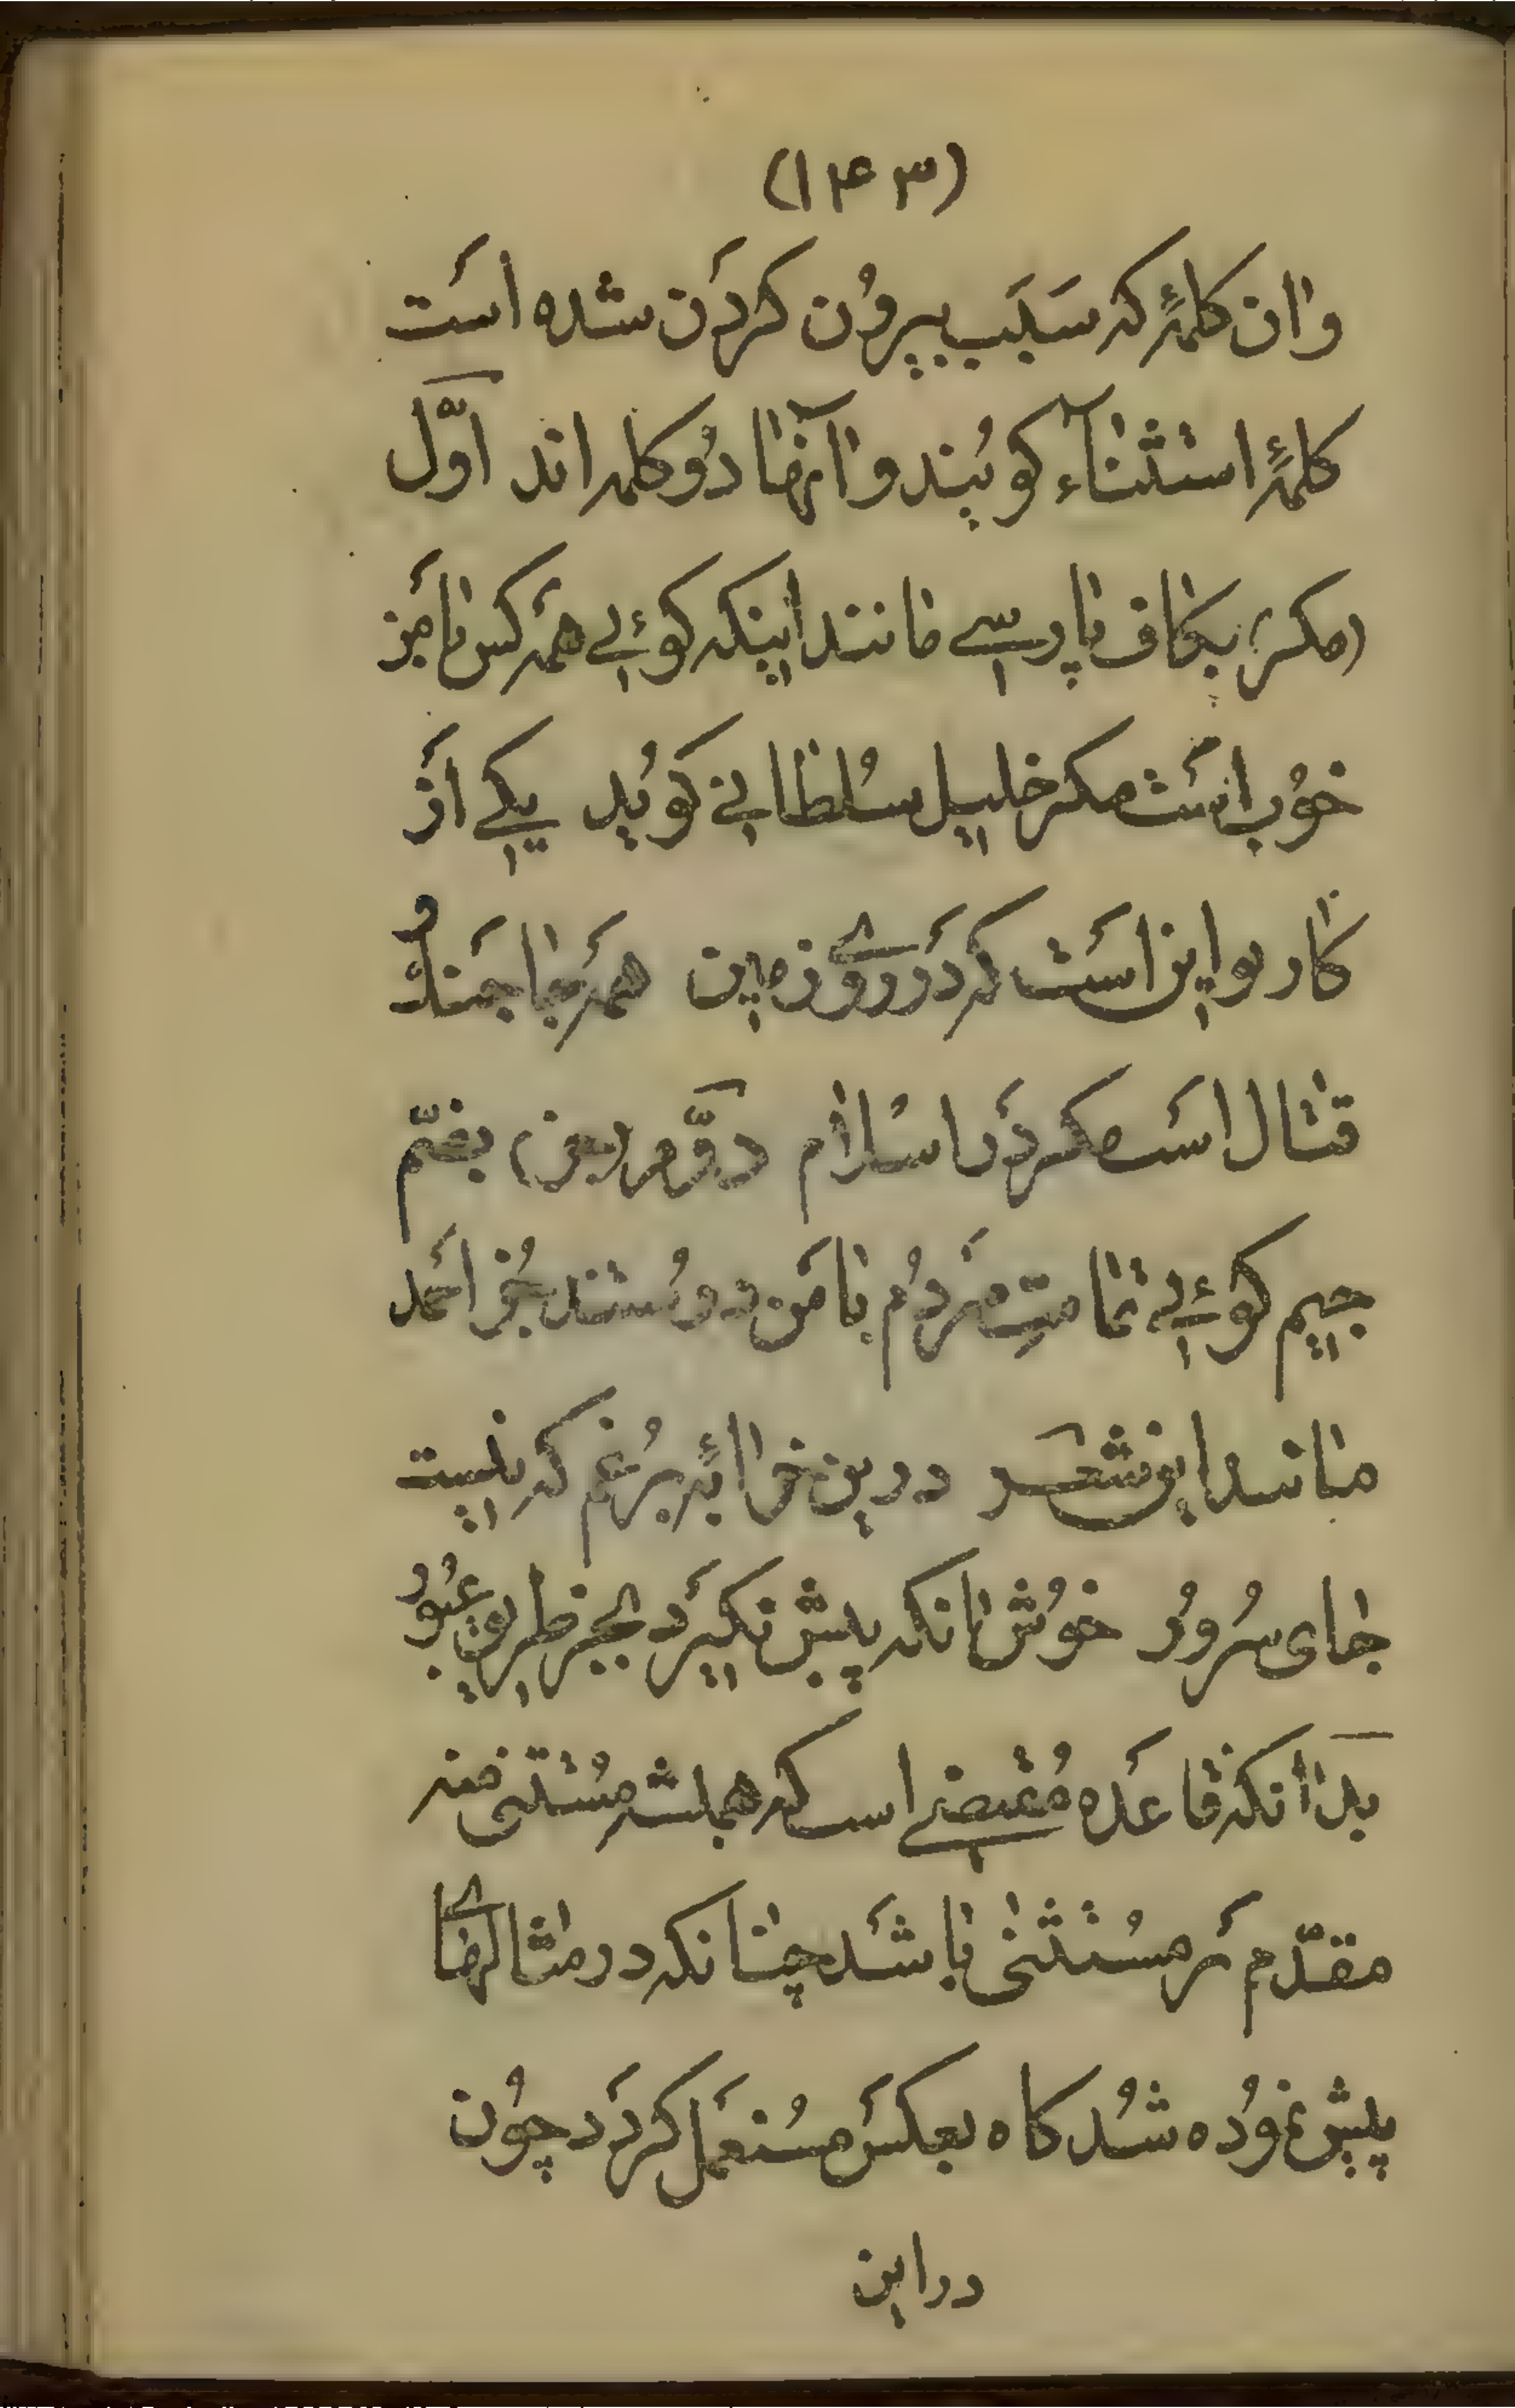 (۱۴۳)
واان کلمۀ که سَبَب بیروُن کردَن شده اسَت
کلمۀ استثناء کویُند واآنها دُو کلمه اند اوَّل
(مکر) بکاف پارسے مانند اینکه کوئے همَه کس بامَن
خوُب اسَت مکر خلیل سُلطانے کویُد یکے اَز
کار بو این اسَت که دَر روُے زمین همَه جا جَنك و
قتال است مکر دَر اسْلام دوَّم (بجز) بضمّ
جیم کوئے تمامتِ مَردُم بامَن دوُستند بجُز احَمد
مانند این شعَر درین خرابهٔ پرُغم که نیست
جای سُروُر خوُش انکه پیش نکیرَد بجز طریق عبُوُر
بدا انکه قاعَده مُقتضے است که همیشه مُستثنی منه
مقدّم بَر مسُتثنی باشَد چنانکه در مثالهاے
پیش نموُده شُد کاه بعکسَ مسُتعمَل کردَد چوُن
در این